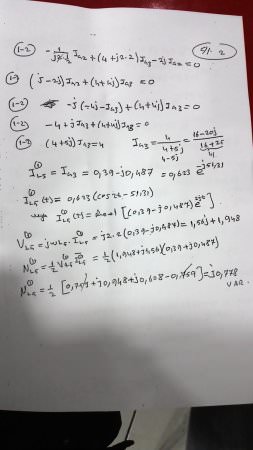 (1-2) - 1/j2·½ Ja2 + (4+j2·2) Ja3 - 2j Ja1 = 0
91. 2
(j-2j) Ja2 + (4+4j) Ja3 = 0
(1-2) -j(-4j - Ja3) + (4+4j) Ja3 = 0
(1-2) -4 + j Ja3 + (4+4j) Ja3 = 0
(1-2) (4+5j) Ja3 = 4 Ia3 = 4/4+5j = 16-20j/16+25
4-5j 41
I(1)L5 = Ia3 = 0,39 - j0,487 = 0,623 e^-j51,31
I(1)L5(t) = 0,623 (cos2t - 51,31)
I(1)L5(t) = [(0,39 - j0,487) e^2jt]
V(1)L5 = jωL5 · I(1)L5 = j2·2(0,39 - j0,487) = 1,56j + 1,948
N(1)L5 = ½ V(1)L5 I(1)L5 = ½ (1,948 + j1,56)(0,39 + j0,487)
N(1)L5 = ½ [0,759 + j0,948 + j0,608 - 0,759] = j0,778
VAR